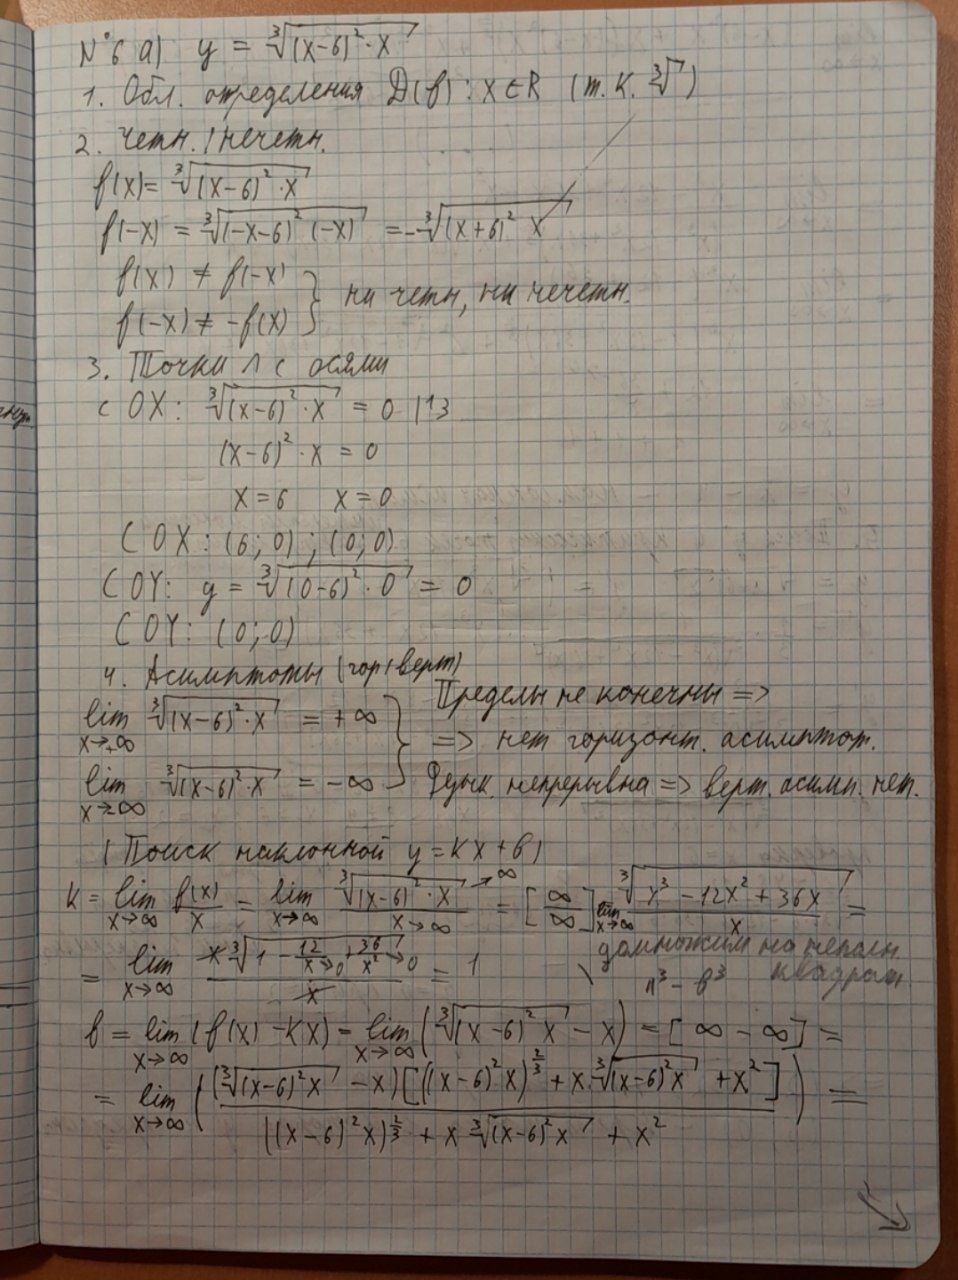 N°6 а) y = ∛((x-6)²·x)
1. Обл. определения D(f): x∈R (т.к. ∛)
2. Четн./нечетн.
f(x) = ∛((x-6)²·x)
f(-x) = ∛((-x-6)²(-x)) = -∛((x+6)² x)
f(x) ≠ f(-x)
f(-x) ≠ -f(x) } ни четн, ни нечетн.
3. Точки ∩ с осями
с OX: ∛((x-6)²·x) = 0 |↑3
(x-6)²·x = 0
x=6 x=0
C OX: (6; 0); (0; 0)
C OY: y = ∛((0-6)²·0) = 0
C OY: (0; 0)
4. Асимптоты (гор, верт)
lim x→+∞ ∛((x-6)²·x) = +∞
lim x→-∞ ∛((x-6)²·x) = -∞
Пределы не конечны =>
=> нет горизонт. асимптот.
Функ. непрерывна => верт. асимп. нет.
(Поиск наклонной y = kx + b)
k = lim x→∞ f(x)/x = lim x→∞ ∛((x-6)²·x) →∞ / x→∞ = [∞/∞] lim x→∞ ∛(x³ - 12x² + 36x) / x =
= lim x→∞ x∛(1 - 12/x→0 + 36/x²→0) / x = 1
домножим на неполн.
квадрат
a³ - b³
b = lim x→∞ (f(x) - kx) = lim x→∞ (∛((x-6)² x) - x) = [∞ - ∞] =
= lim x→∞ ((∛((x-6)²x) - x)[((x-6)²x)^(2/3) + x·∛((x-6)²x) + x²] / (((x-6)²x)^(2/3) + x ∛((x-6)²x) + x²)) =